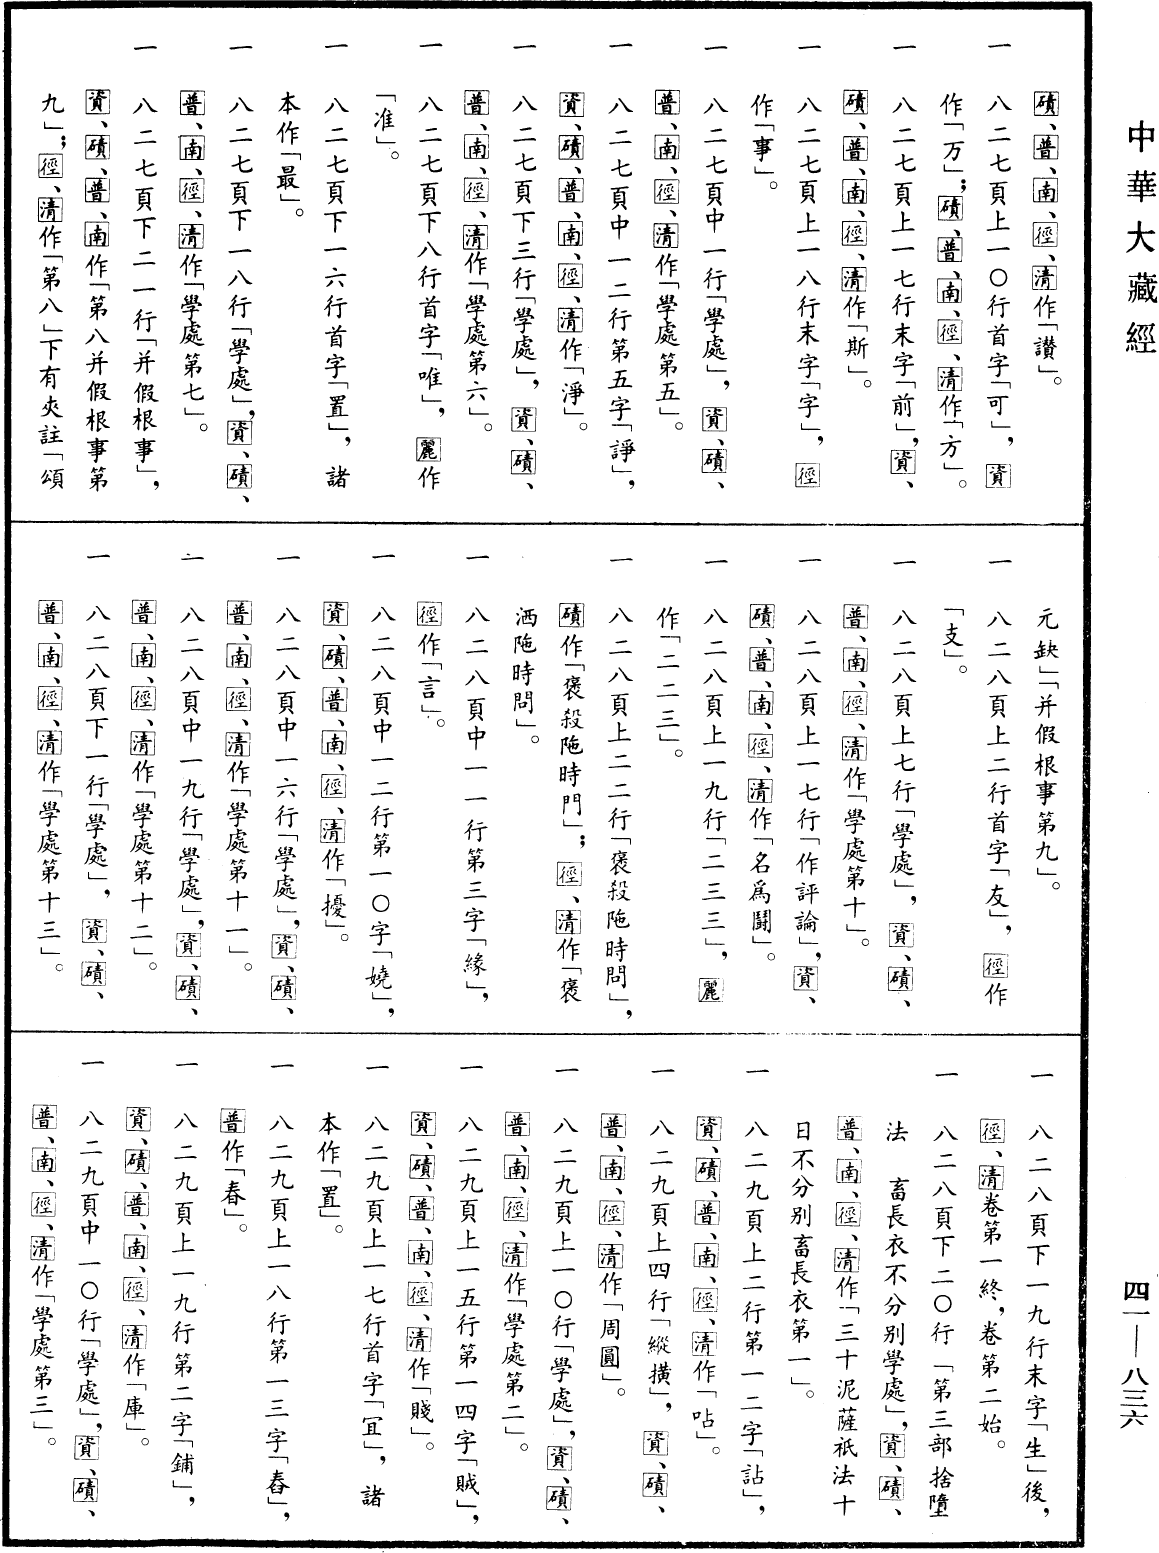 中華大藏經
磧、普、南、徑、清作「讚」。
一 八二七頁上一〇行首字「可」，資
作「万」；磧、普、南、徑、清作「方」。
一 八二七頁上一七行末字「前」，資、
磧、普、南、徑、清作「斯」。
一 八二七頁上一八行末字「字」，徑
作「事」。
一 八二七頁中一行「學處」，資、磧、
普、南、徑、清作「學處第五」。
一 八二七頁中一二行第五字「諍」，
資、磧、普、南、徑、清作「淨」。
一 八二七頁下三行「學處」，資、磧、
普、南、徑、清作「學處第六」。
一 八二七頁下八行首字「唯」，麗作
「准」。
一 八二七頁下一六行首字「置」，諸
本作「最」。
一 八二七頁下一八行「學處」，資、磧、
普、南、徑、清作「學處第七」。
一 八二七頁下二一行「并假根事」，
資、磧、普、南作「第八并假根事第
九」；徑、清作「第八」下有夾註「頌
元缺」「并假根事第九」。
一 八二八頁上二行首字「友」，徑作
「支」。
一 八二八頁上七行「學處」，資、磧、
普、南、徑、清作「學處第十」。
一 八二八頁上一七行「作評論」，資、
磧、普、南、徑、清作「名爲鬪」。
一 八二八頁上一九行「二三三」，麗
作「二二三」。
一 八二八頁上二二行「褒殺陁時問」，
磧作「褒殺陁時門」；徑、清作「褒
洒陁時問」。
一 八二八頁中一一行第三字「緣」，
徑作「言」。
一 八二八頁中一二行第一〇字「嬈」，
資、磧、普、南、徑、清作「擾」。
一 八二八頁中一六行「學處」，資、磧、
普、南、徑、清作「學處第十一」。
一 八二八頁中一九行「學處」，資、磧、
普、南、徑、清作「學處第十二」。
一 八二八頁下一行「學處」，資、磧、
普、南、徑、清作「學處第十三」。
一 八二八頁下一九行末字「生」後，
徑、清卷第一終，卷第二始。
一 八二八頁下二〇行「第三部捨墮
法 畜長衣不分别學處」，資、磧、
普、南、徑、清作「三十泥薩祇法十
日不分别畜長衣第一」。
一 八二九頁上二行第一二字「詀」，
資、磧、普、南、徑、清作「呫」。
一 八二九頁上四行「縱撗」，資、磧、
普、南、徑、清作「周圓」。
一 八二九頁上一〇行「學處」，資、磧、
普、南、徑、清作「學處第二」。
一 八二九頁上一五行第一四字「賊」，
資、磧、普、南、徑、清作「賤」。
一 八二九頁上一七行首字「冝」，諸
本作「置」。
一 八二九頁上一八行第一三字「舂」，
普作「春」。
一 八二九頁上一九行第二字「鋪」，
資、磧、普、南、徑、清作「庫」。
一 八二九頁中一〇行「學處」，資、磧、
普、南、徑、清作「學處第三」。
四一—八三六